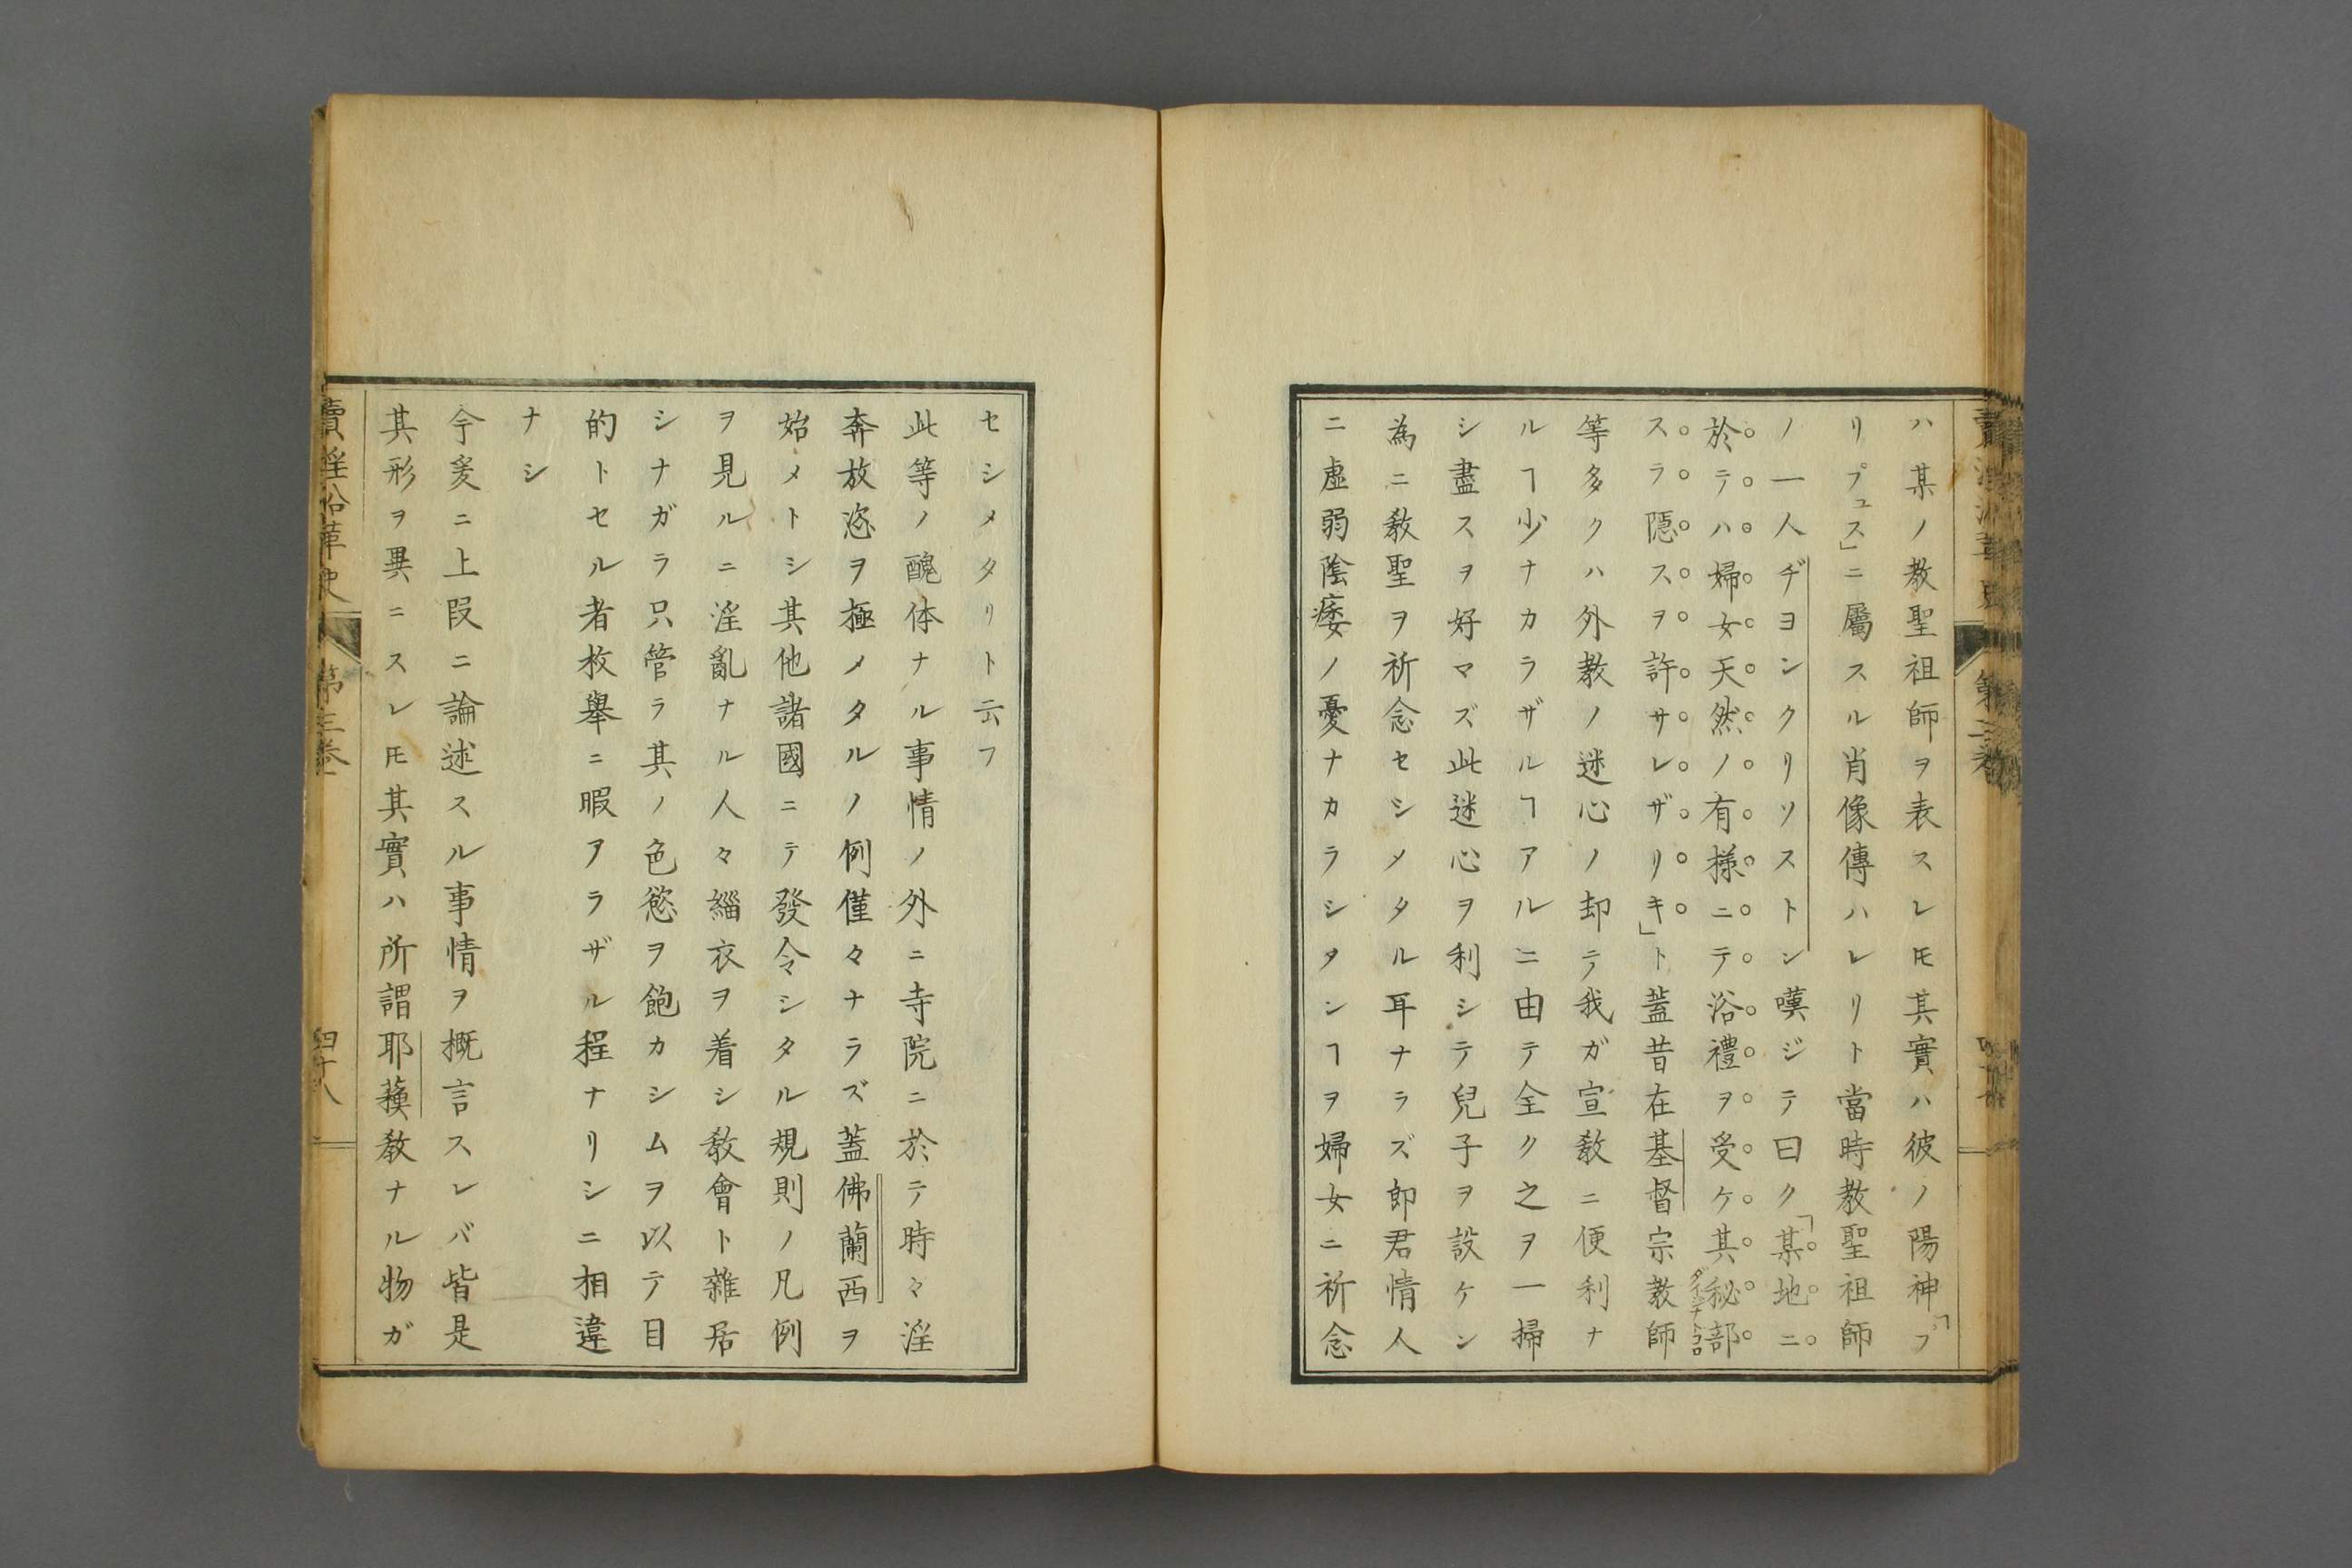 ハ某ノ教聖祖師ヲ表スレㄮ其實ハ彼ノ陽神「フ
リプュス」ニ屬スル肖像傳ハレリト當時教聖祖師
ノ一人ヂヨンクリソストン嘆ジテ曰ク「某地ニ
於テハ婦女天然ノ有様ニテ浴禮ヲ受ケ其秘部
スラ隠スヲ許サレザリキ」ト蓋昔在基督宗教師
等多クハ外教ノ迷心ノ却テ我ガ宣教ニ便利ナ
ルヿ少ナカラザルヿアルニ由テ全ク之ヲ一掃
シ盡スヲ好マズ此迷心ヲ利シテ兒子ヲ設ケン
為ニ教聖ヲ祈念セシメタル耳ナラズ郎君情人
ニ虚弱陰痿ノ憂ナカラシタンヿヲ婦女ニ祈念
セシメタリト云フ
此等ノ醜体ナル事情ノ外ニ寺院ニ於テ時々淫
奔放恣ヲ極メタルノ例僅々ナラズ蓋佛蘭西ヲ
始メトシ其他諸國ニテ發令シタル規則ノ凡例
ヲ見ルニ淫亂ナル人々緇衣ヲ着シ教會ト雜居
シナガラ只管ラ其ノ色慾ヲ飽カシムヲ以テ目
的トセル者枚舉ニ暇アラザル程ナリシニ相違
ナシ
今爰ニ上叚ニ論述スル事情ヲ概言スレバ皆是
其形ヲ異ニスレㄮ其實ハ所謂耶蘓教ナル物ガ
賣淫沿革史 第三巻 四十八